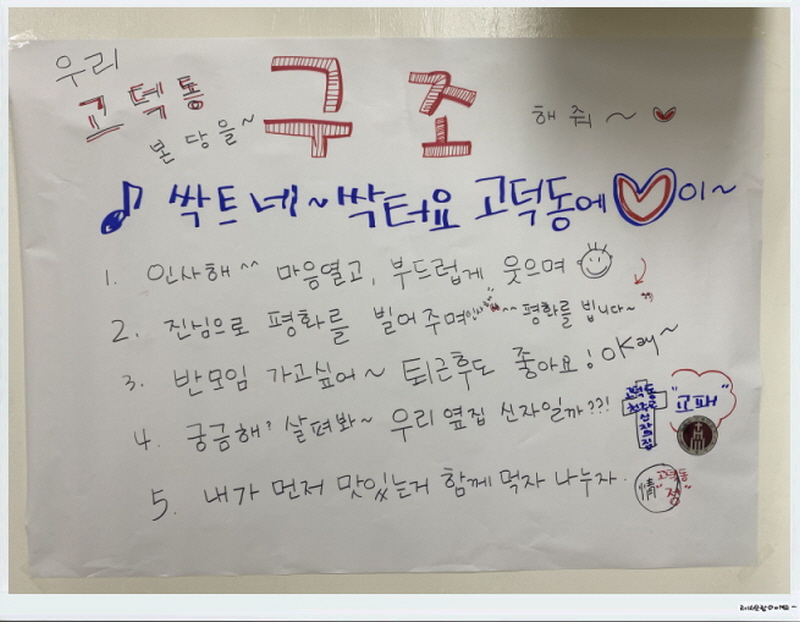 우리
고덕동 구조
본당을~ 해줘~
♪ 싹트네~싹터요 고덕동에 ♡이~
1. 인사해^^ 마음열고, 부드럽게 웃으며
2. 진심으로 평화를 빌어주며 ~~평화를 빕니다~"
3. 반모임 가고싶어~ 퇴근후도 좋아요! okay~
4. 궁금해' 살펴봐~ 우리 옆집 신자일까??! 고덕동 천주교 신자의 집 "교패"
5. 내가 먼저 맛있는거 함께 먹자 나누자. 情 고덕동 "정"